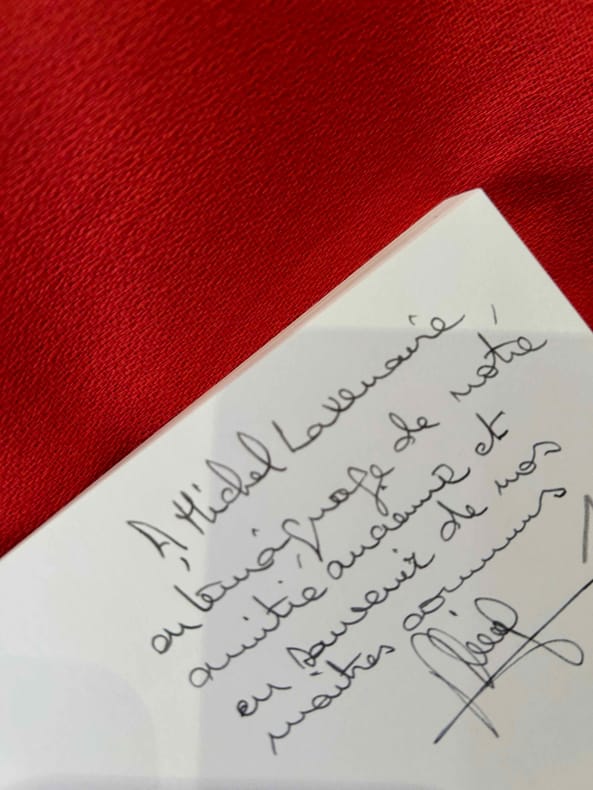 A Michel Lavenaire,
en témoignage de notre
amitié ancienne et
en souvenir de nos
maîtres communs